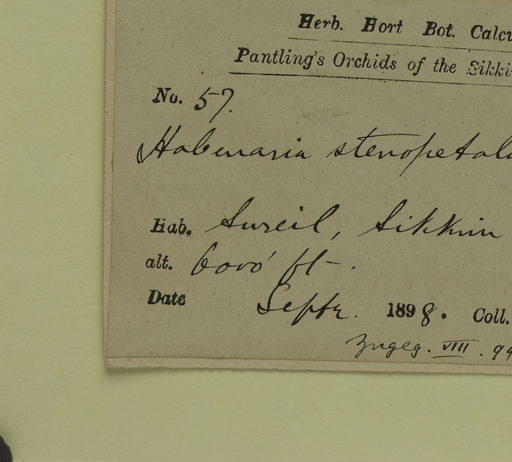 Herb. Hort Bot. Calcu
Pantling's Orchids of the Sikki
No. 57.
Habenaria stenopetala
Hab. Sureil, Sikkim
alt. 6000 ft.
Date Septr. 1898. Coll.
Zugeg. VIII. 99